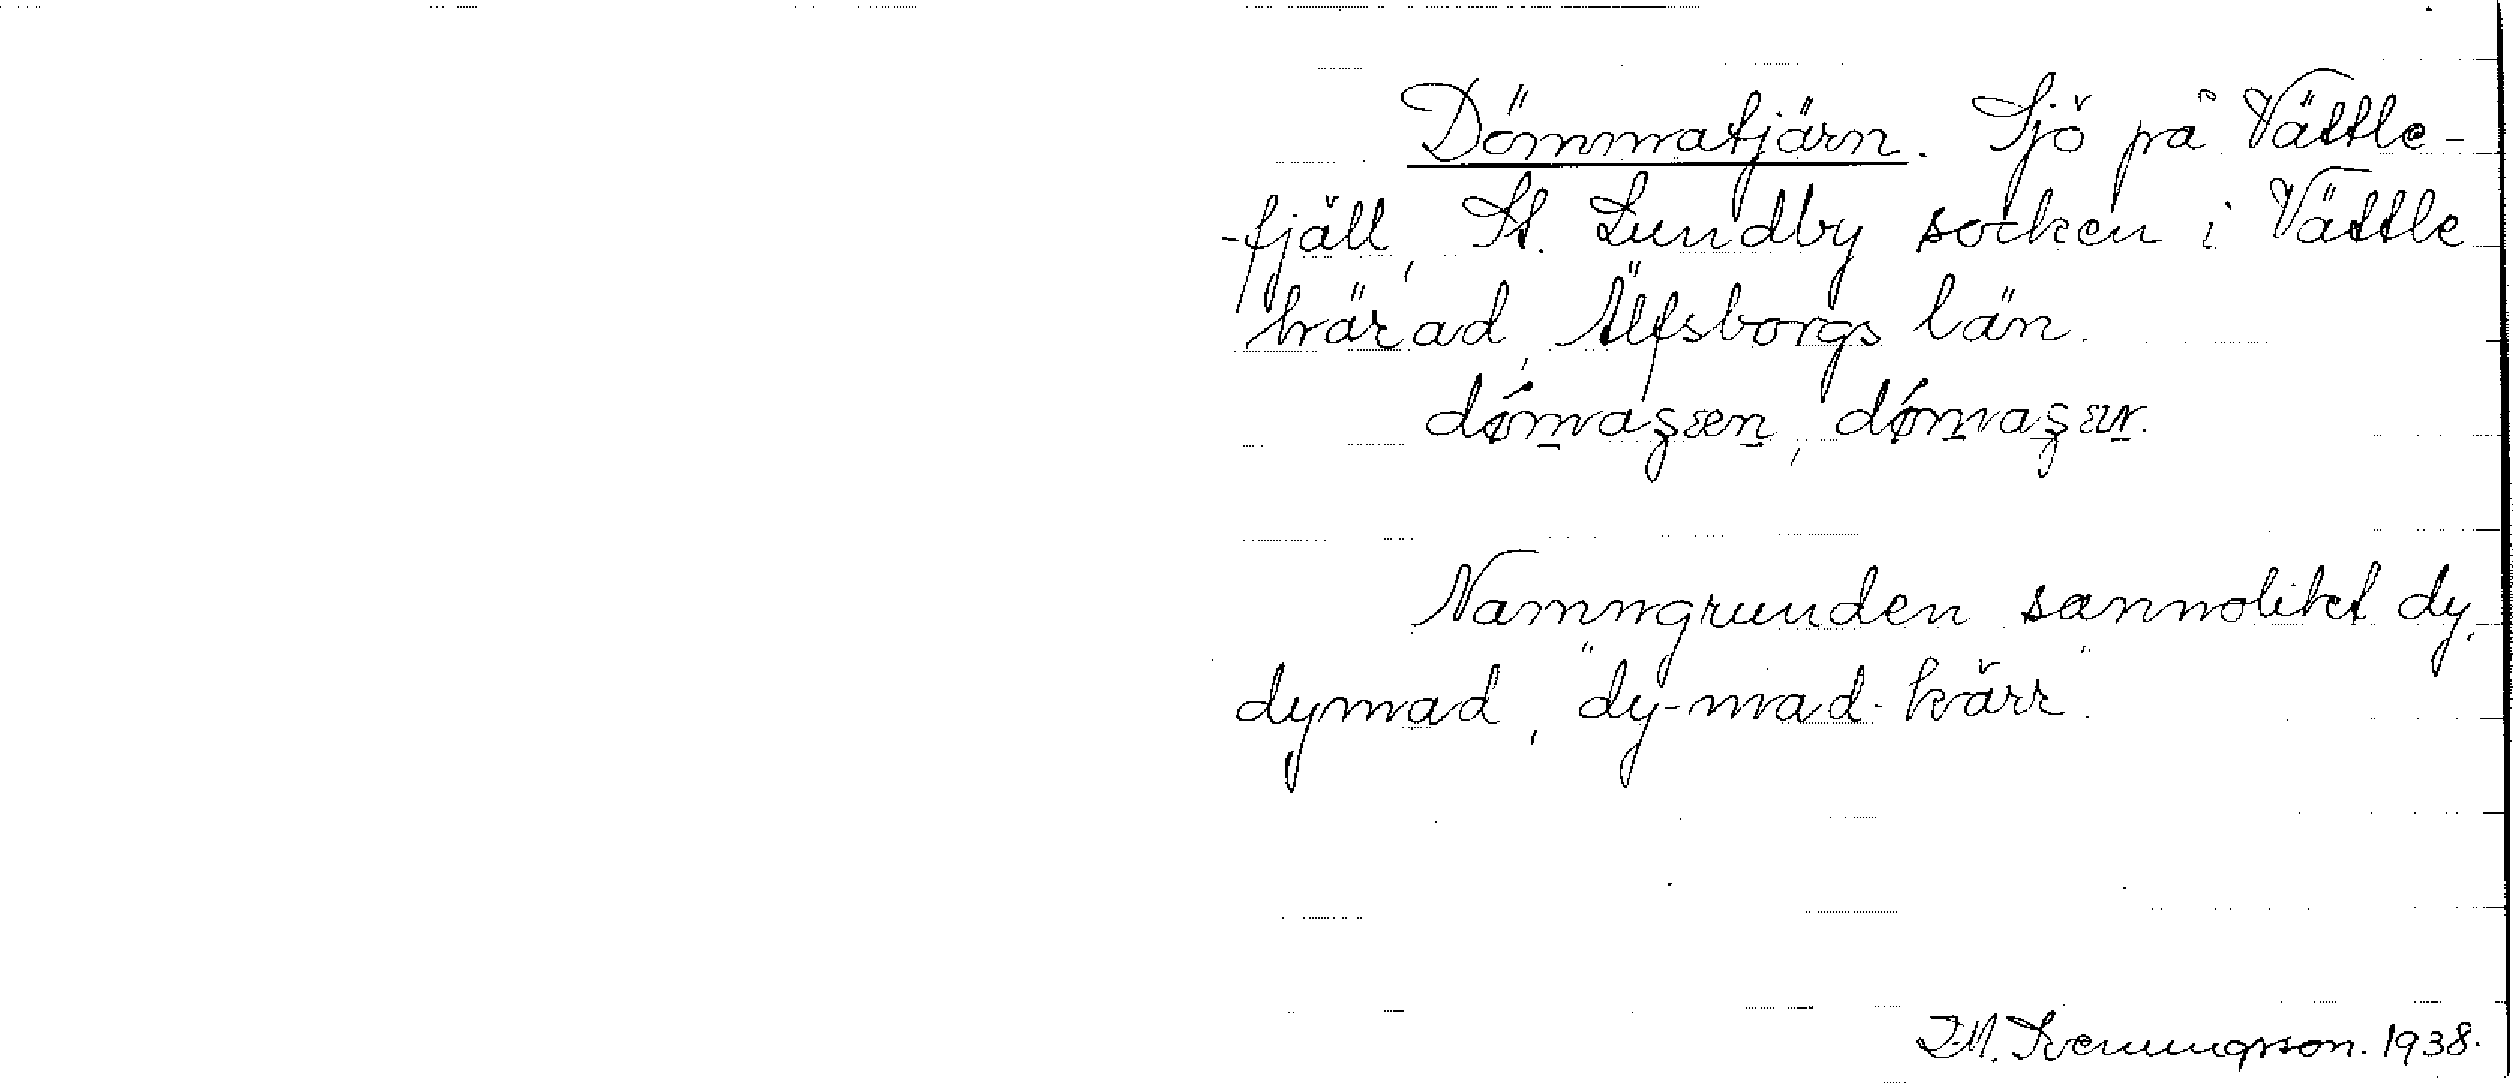 Dömmatjärn. Sjö på Vättle-
-fjäll, St. Lundby socken i Vättle
härad, Älfsborgs län.
Namngrunden sannolikt dy,
dymad, "dy-mad-kärr".
J.M. Svenungsson. 1938.